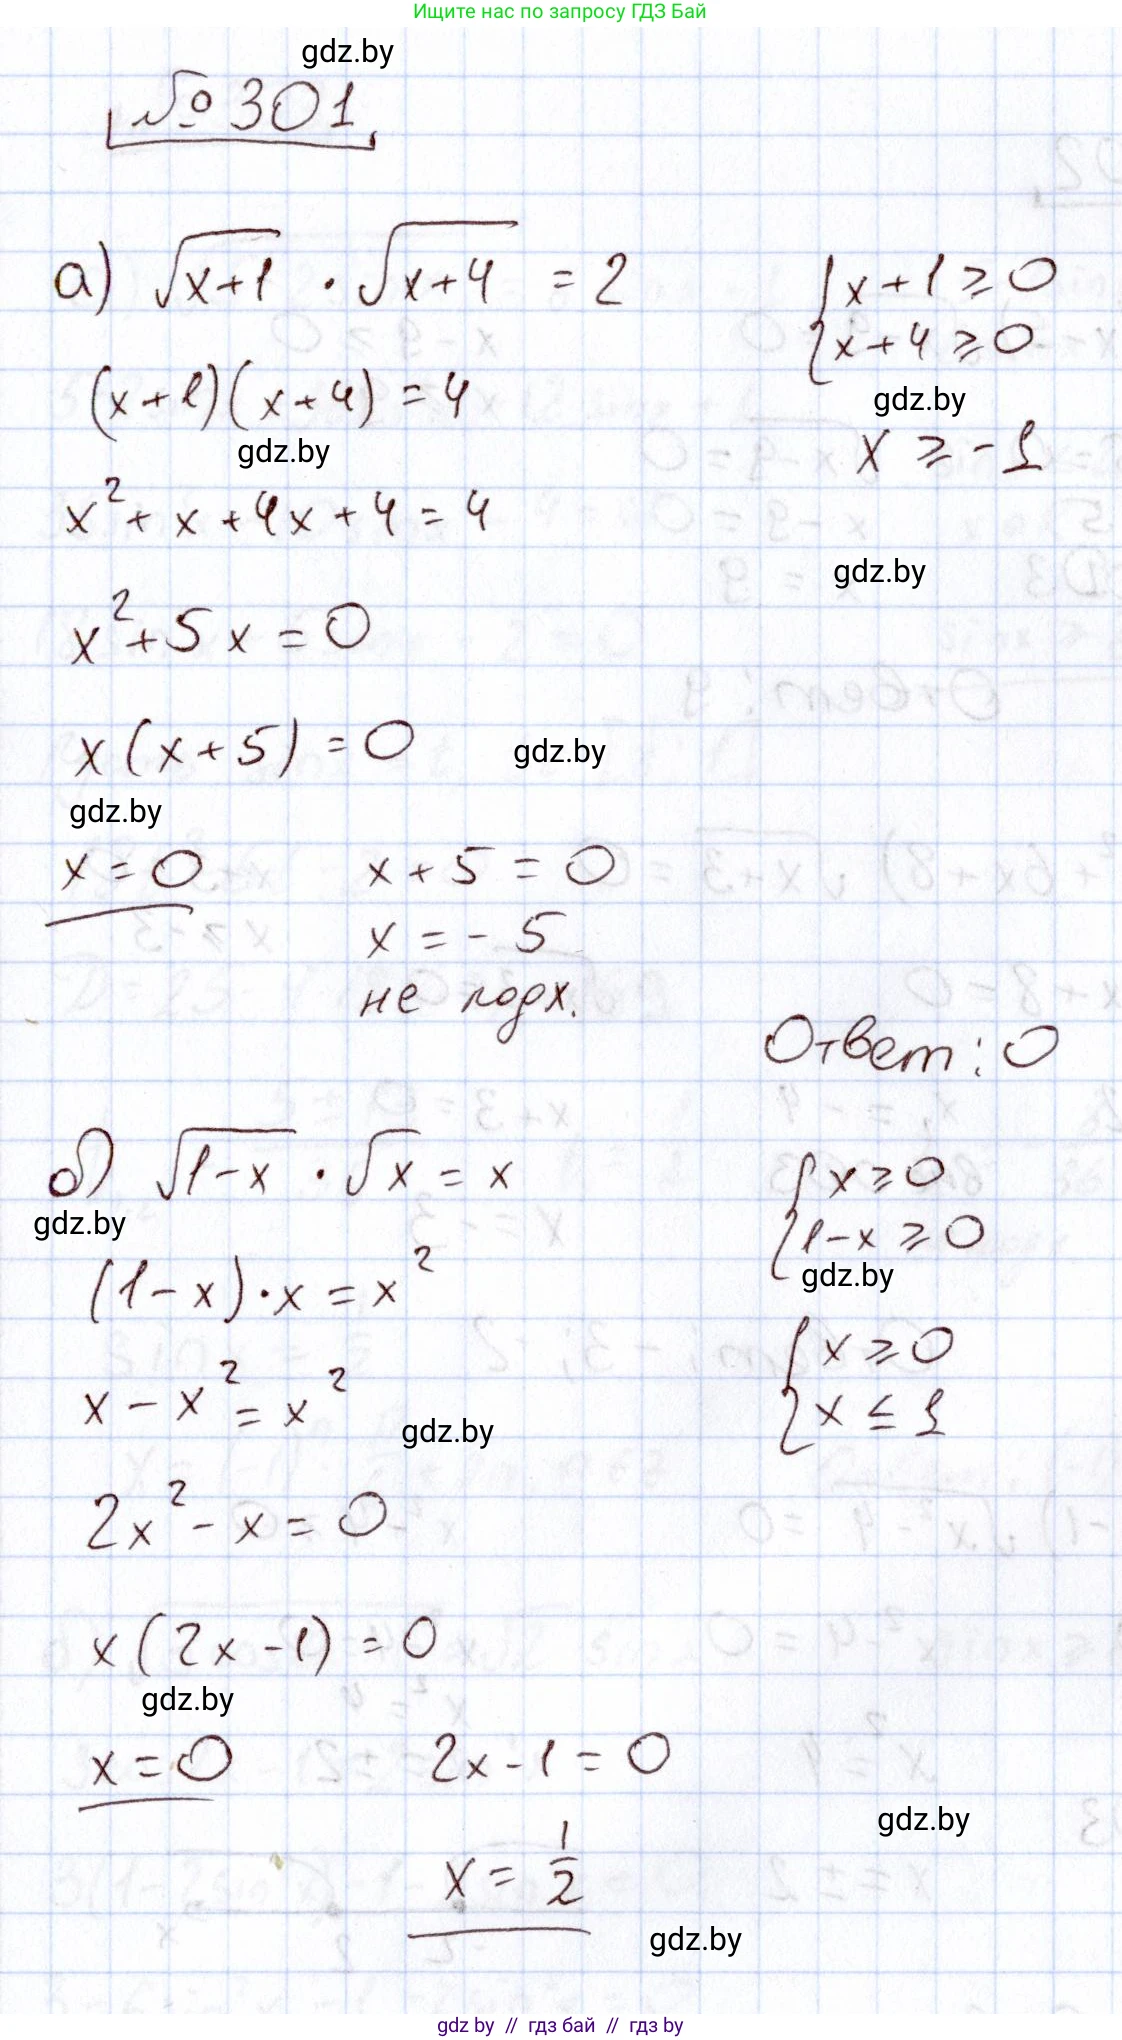 Ищите нас по запросу ГДЗ Бай
gdz.by
№ 301
а) √(x+1) · √(x+4) = 2
{ x+1 ≥ 0
{ x+4 ≥ 0
(x+1)(x+4) = 4
gdz.by
gdz.by
x ≥ -1
x² + x + 4x + 4 = 4
gdz.by
x² + 5x = 0
x(x+5) = 0
gdz.by
gdz.by
x = 0
x + 5 = 0
x = - 5
не подх.
Ответ: 0
б) √(1-x) · √x = x
{ x ≥ 0
{ 1-x ≥ 0
gdz.by
(1-x)·x = x²
gdz.by
{ x ≥ 0
{ x ≤ 1
x - x² = x²
gdz.by
2x² - x = 0
x(2x-1) = 0
gdz.by
x = 0
2x - 1 = 0
gdz.by
x = 1/2
gdz.by
gdz by // гдз бай // гдз by